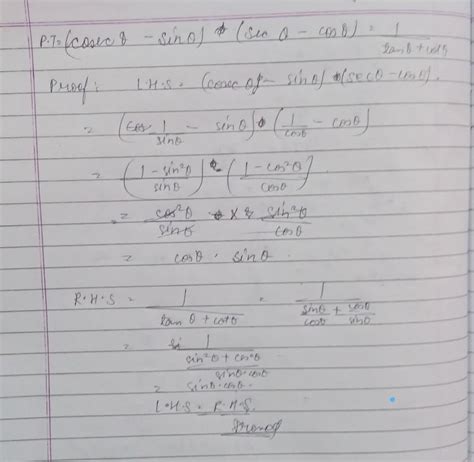 P.T. = (cosec θ - sin θ) * (sec θ - cos θ) = 1/(tan θ + cot θ)
Proof : L.H.S = (cosec θ - sin θ) * (sec θ - cos θ).
= (1/sin θ - sin θ) * (1/cos θ - cos θ)
= ((1 - sin²θ)/sin θ) * ((1 - cos²θ)/cos θ)
= cos²θ/sin θ × sin²θ/cos θ
= cos θ . sin θ.
R.H.S = 1/(tan θ + cot θ) = 1/(sin θ/cos θ + cos θ/sin θ)
= 1/((sin²θ + cos²θ)/(sin θ . cos θ))
= sin θ . cos θ.
L.H.S = R.H.S.